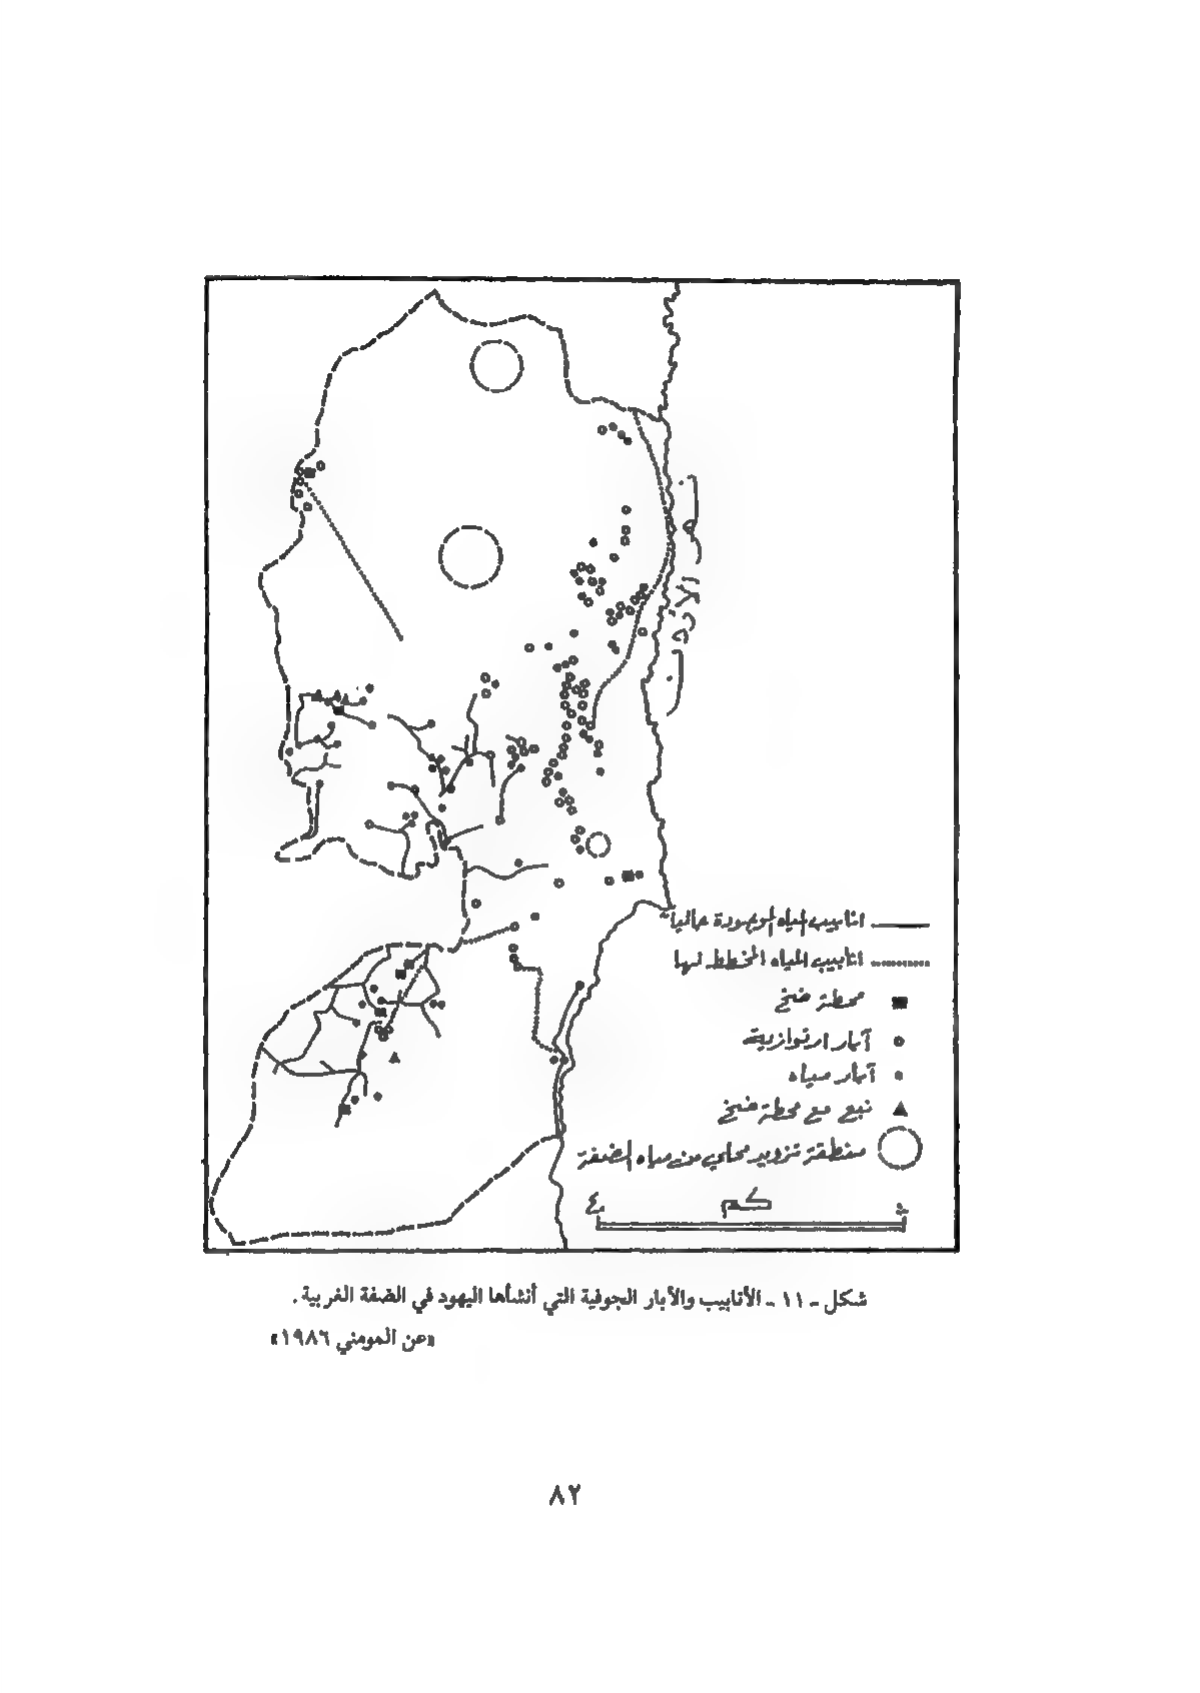 نهر الأردن
انابيب المياه الموجودة حالياً
انابيب المياه المخطط لها
محطة ضخ
آبار ارتوازية
آبار مياه
نبع مع محطة ضخ
منطقة تزويد محلي من مياه الضفة
كم
شكل - ١١ - الأنابيب والأبار الجوفية التي أنشأها اليهود في الضفة الغربية .
«عن المومني ١٩٨٦»
٨٢